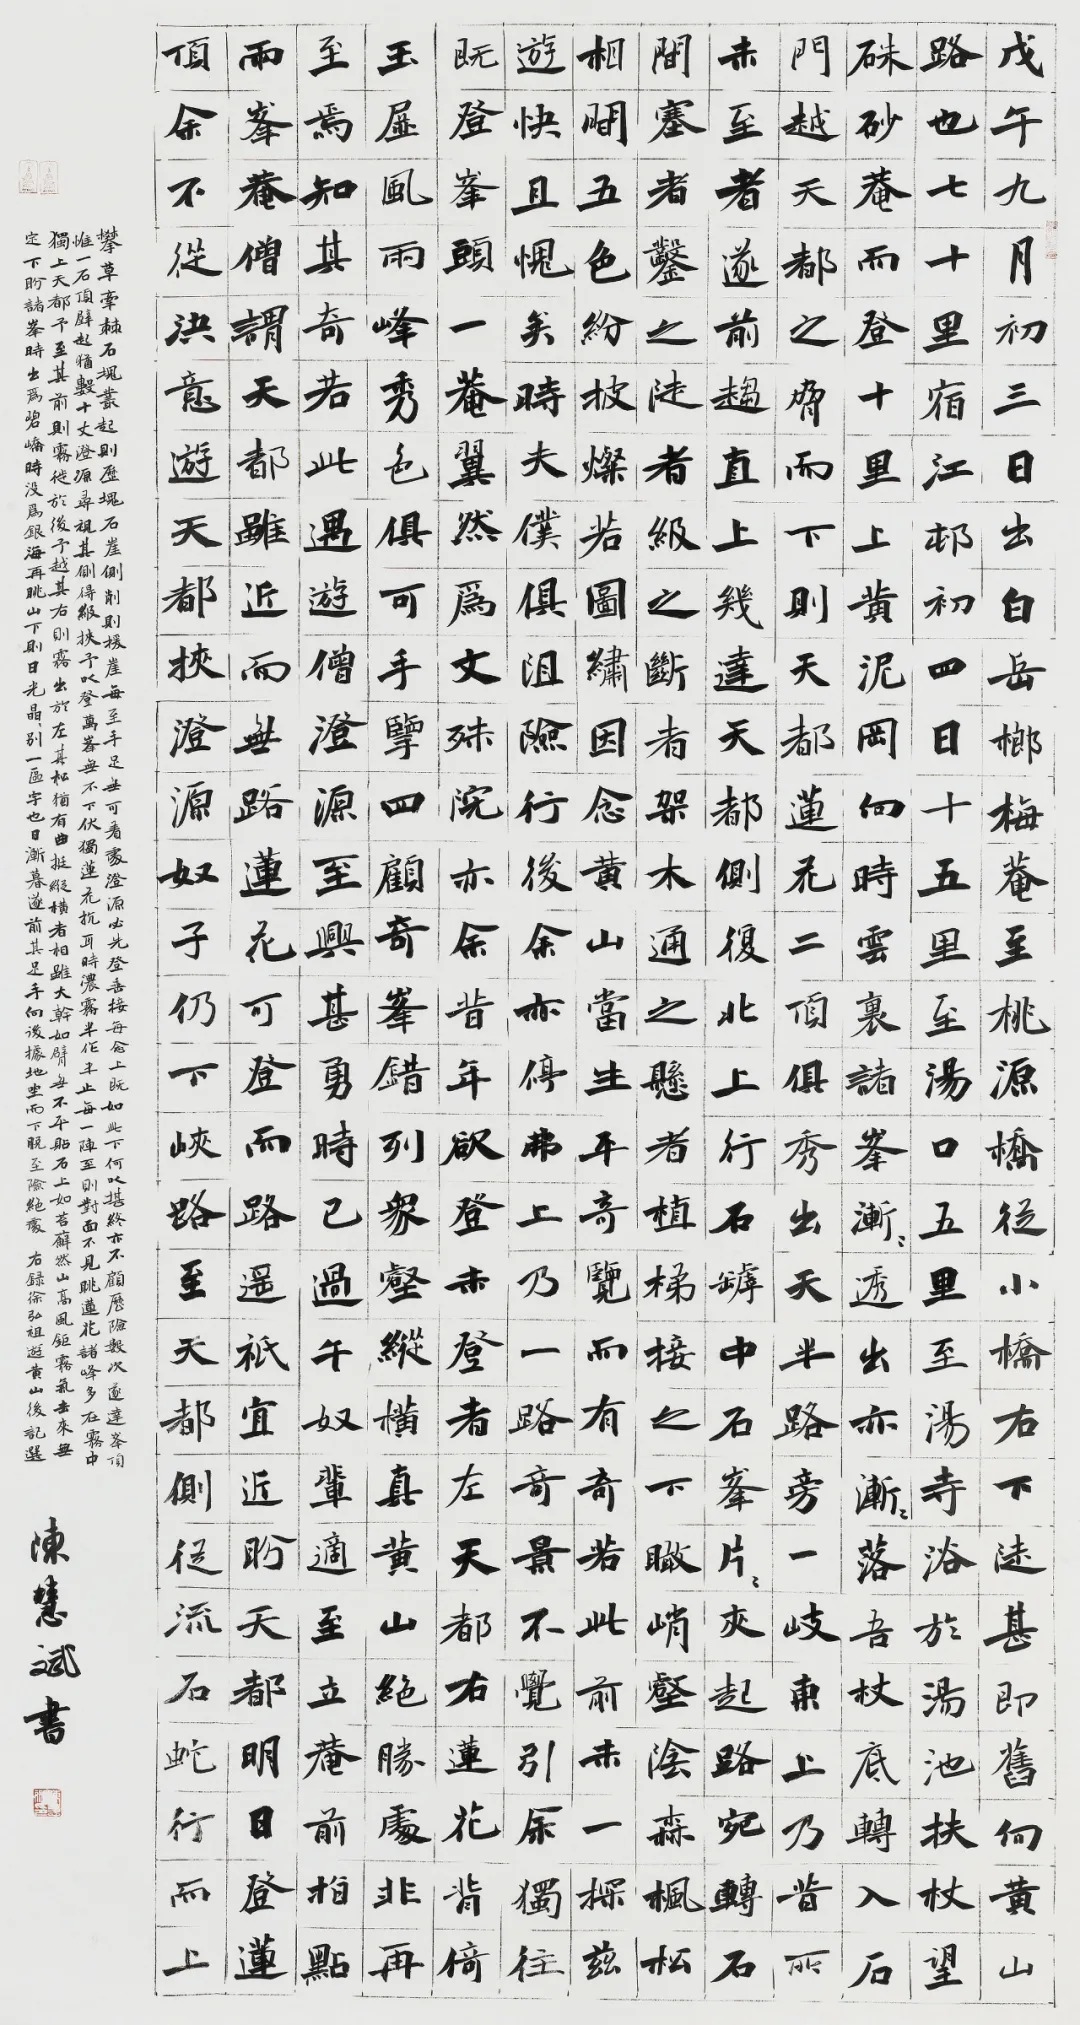 戊午九月初三日出白岳榔梅菴至桃源橋從小橋右下陡甚即舊向黄山
路也七十里宿江邨初四日十五里至湯口五里至湯寺浴於湯池扶杖望
硃砂菴而登十里上黄泥岡向時雲裏諸峯漸〻透出亦漸〻落吾杖底轉入石
門越天都之脅而下則天都蓮花二頂俱秀出天半路旁一岐東上乃昔所
未至者遂前趨直上幾達天都側復北上行石罅中石峯片〻夾起路宛轉石
間塞者鑿之陡者級之斷者架木通之懸者植梯接之下瞰峭壑陰森楓松
相間五色紛披燦若圖繡因念黄山當生平奇覽而有奇若此前未一探茲
遊快且愧矣時夫僕俱阻險行後余亦停弗上乃一路奇景不覺引余獨往
既登峯頭一菴翼然爲文殊院亦余昔年欲登未登者左天都右蓮花背倚
玉屏風兩峰秀色俱可手擥四顧奇峯錯列衆壑縱横真黄山絶勝處非再
至焉知其奇若此遇遊僧澄源至興甚勇時已過午奴輩適至立菴前指點
兩峯菴僧謂天都雖近而無路蓮花可登而路遥祇宜近盼天都明日登蓮
頂余不從決意遊天都挾澄源奴子仍下峽路至天都側從流石蛇行而上
攀草牽棘石塊叢起則歷塊石崖側削則援崖每至手足無可着處澄源必先登垂接每念上既如此下何以堪終亦不顧歷險數次遂達峯頂
惟一石頂壁起猶數十丈澄源尋視其側得級挾予以登萬峯無不下伏獨蓮花抗耳時濃霧半作半止每一陣至則對面不見眺蓮花諸峰多在霧中
獨上天都予至其前則霧徙於後予越其右則霧出於左其松猶有曲挺縱横者柏雖大幹如臂無不平貼石上如苔蘚然山高風鉅霧氣去來無
定下盼諸峯時出爲碧嶠時没爲銀海再眺山下則日光晶〻别一區宇也日漸暮遂前其足手向後據地坐而下脱至險絶處 右録徐弘祖遊黄山後記選
陳慧斌書